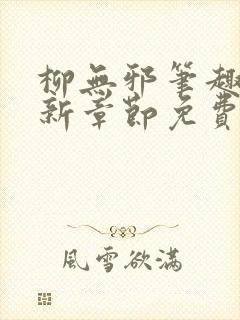 柳無邪筆趣
新章節免費
風雪欲滿